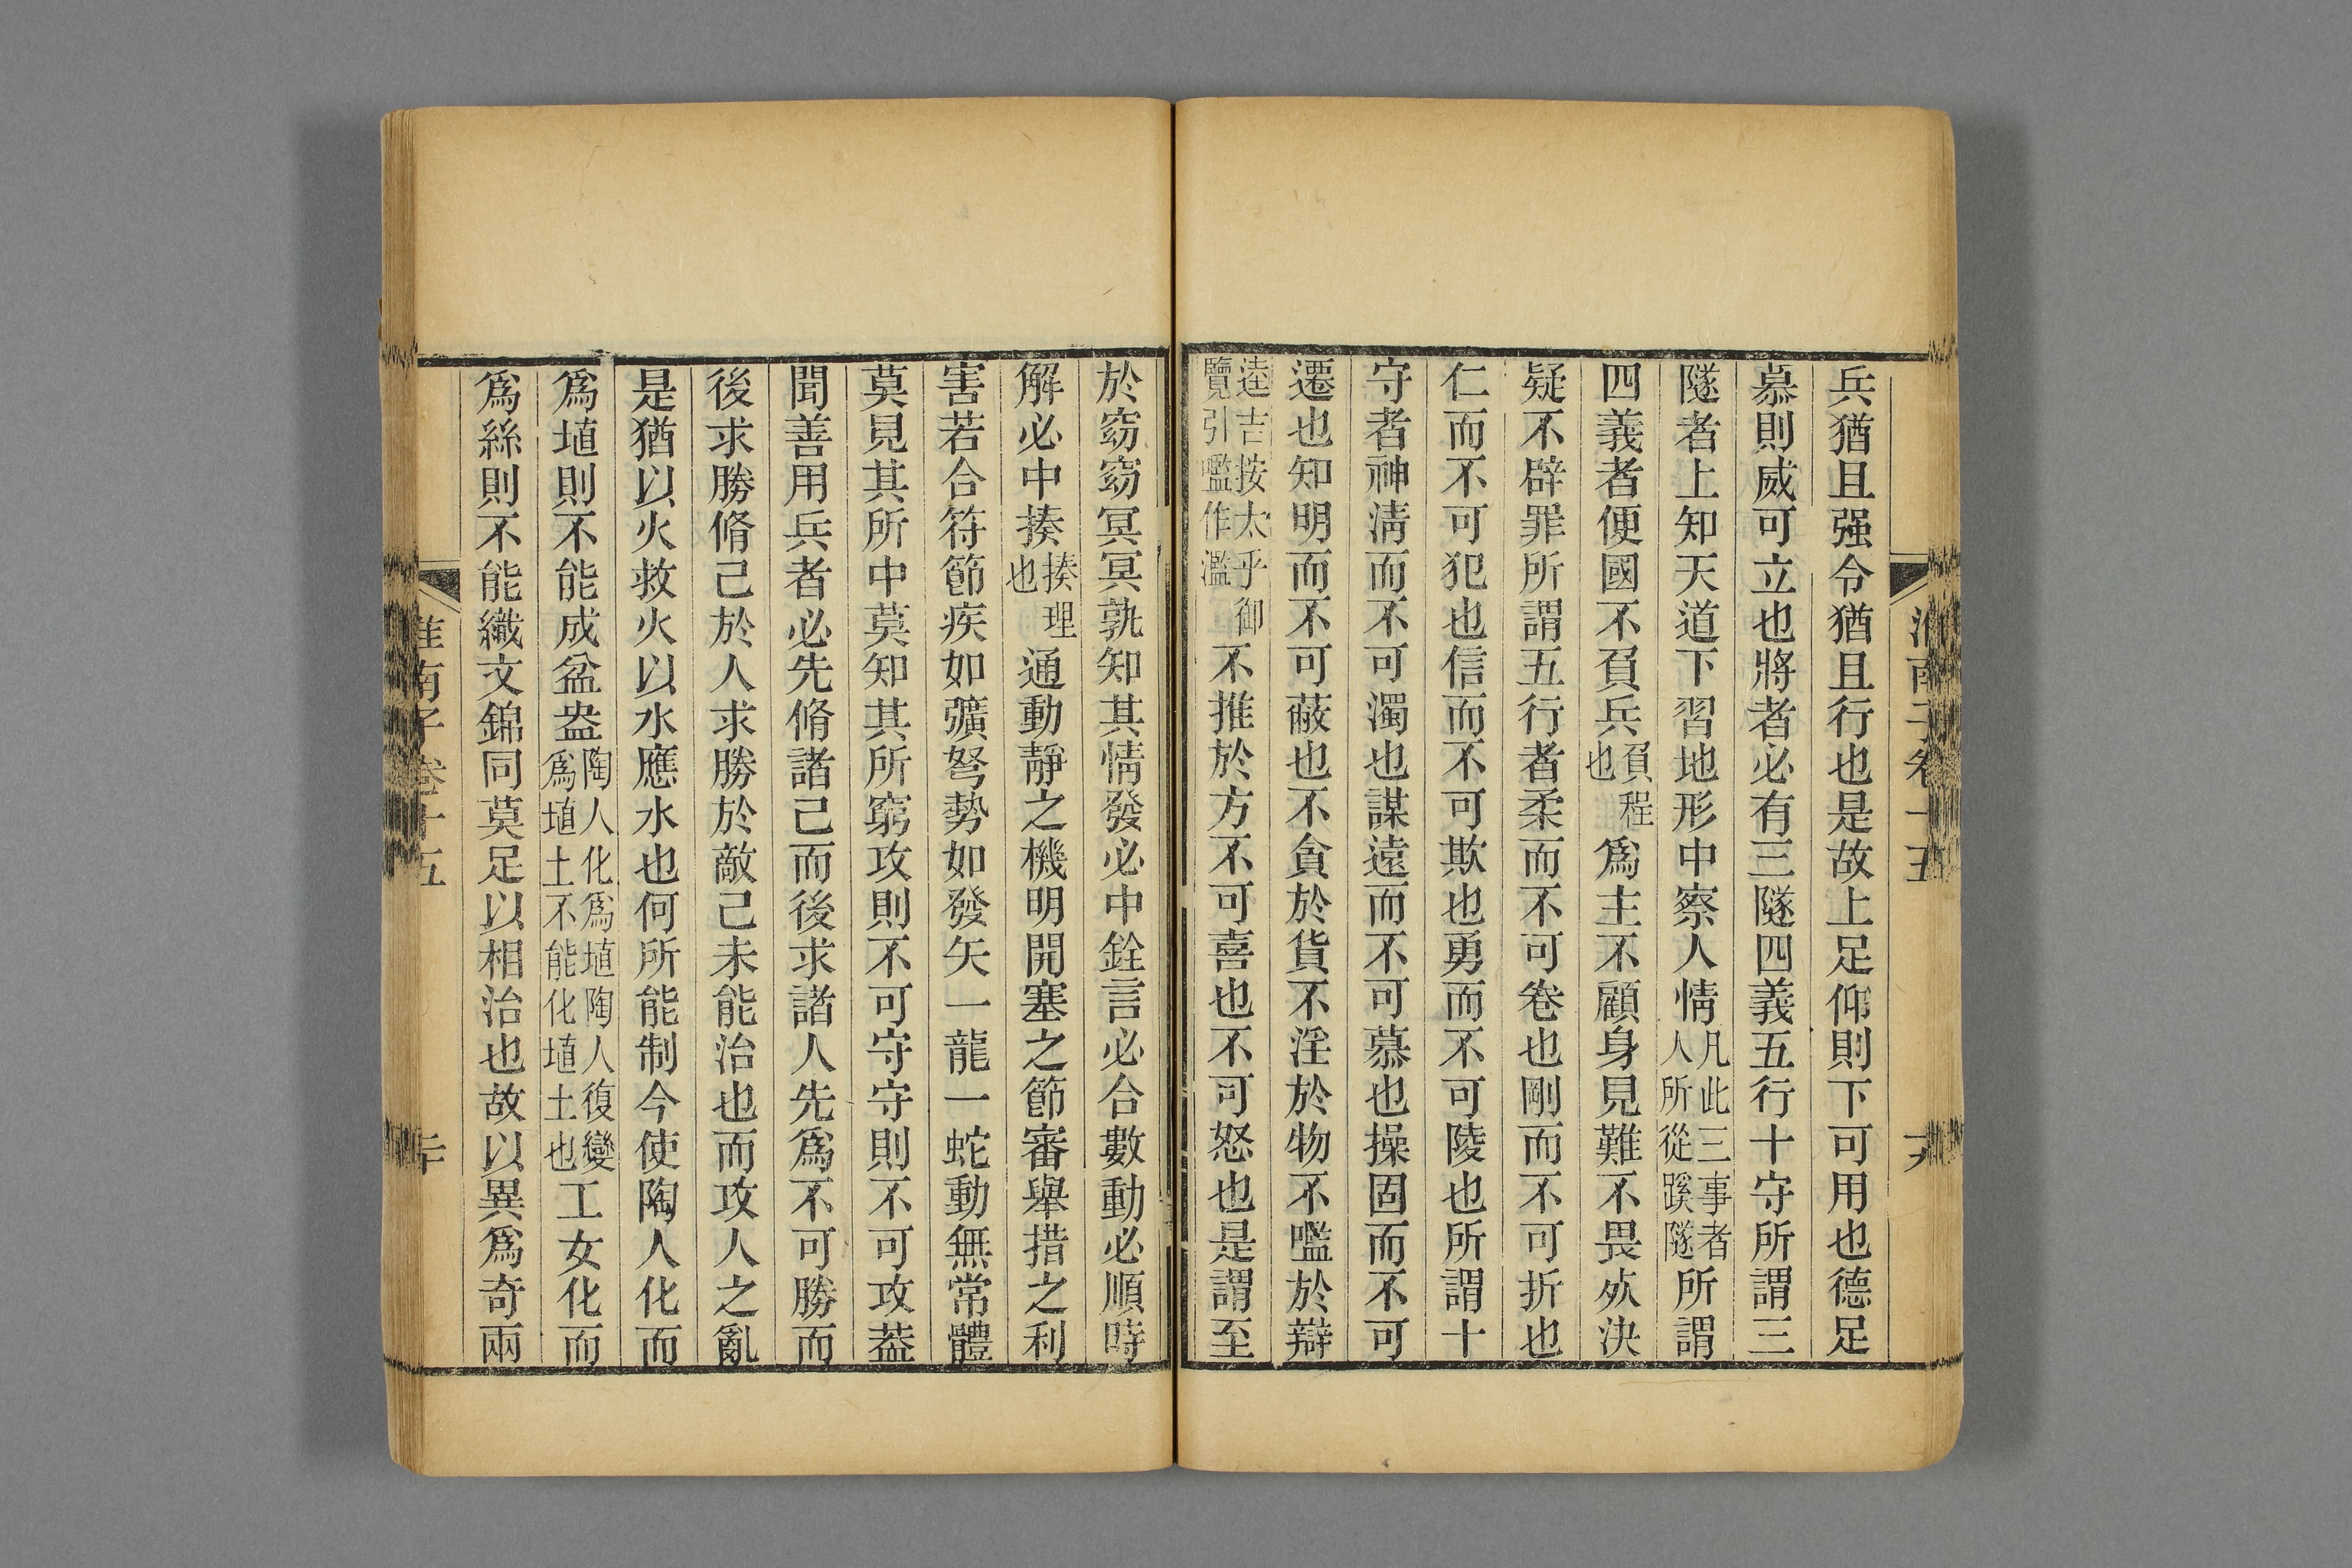 淮南子卷十五
兵猶且强令猶且行也是故上足仰則下可用也德足
慕則威可立也將者必有三隧四義五行十守所謂三
隧者上知天道下習地形中察人情凡此三事者人所從蹊隧所謂
四義者便國不負兵負程也爲主不顧身見難不畏死決
疑不辟罪所謂五行者柔而不可卷也剛而不可折也
仁而不可犯也信而不可欺也勇而不可陵也所謂十
守者神淸而不可濁也謀遠而不可慕也操固而不可
遷也知明而不可蔽也不貪於貨不淫於物不嚂於辯
逵吉按太乎御覽引嚂作濫不推於方不可喜也不可怒也是謂至
於窈窈冥冥孰知其情發必中銓言必合數動必順時
解必中揍揍理也通動靜之機明開塞之節審舉措之利
害若合符節疾如彍弩勢如發矢一龍一蛇動無常體
莫見其所中莫知其所窮攻則不可守守則不可攻葢
聞善用兵者必先脩諸己而後求諸人先爲不可勝而
後求勝脩己於人求勝於敵己未能治也而攻人之亂
是猶以火救火以水應水也何所能制今使陶人化而
爲埴則不能成盆盎陶人化爲埴陶人復變爲埴土不能化埴土也工女化而
爲絲則不能織文錦同莫足以相治也故以異爲奇兩
淮南子卷十五